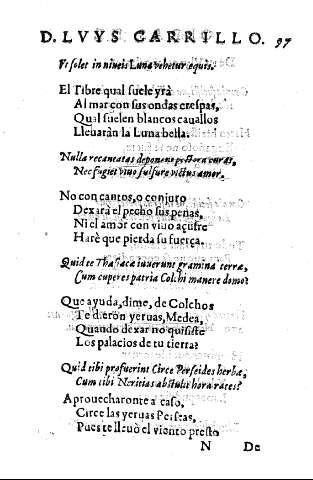 D. LVYS CARRILLO. 97
Vt solet in niueis Luna vehetur equis.
El Tibre qual suele yrà
Al mar con sus ondas crespas,
Qual suelen blancos cauallos
Lleuaràn la Luna bella.
Nulla recantatas deponent pectora curas,
Nec fugiet viuo sulfure victus amor.
No con cantos, o conjuro
Dexarà el pecho sus penas,
Ni el amor con viuo açufre
Harè que pierda su fuerça.
Quid te Phasiacæ iuuerunt gramina terræ,
Cum cuperes patria Colchi manere domo?
Que ayuda, dime, de Colchos
Te dieron yeruas, Medea,
Quando dexar no quisiste
Los palacios de tu tierra?
Quid tibi profuerint Circe Perseides herbæ,
Cum tibi Neritias abstulit hora rates?
Aprouecharonte a caso,
Circe las yeruas Perseas,
Pues te lleuò el viento presto
N De